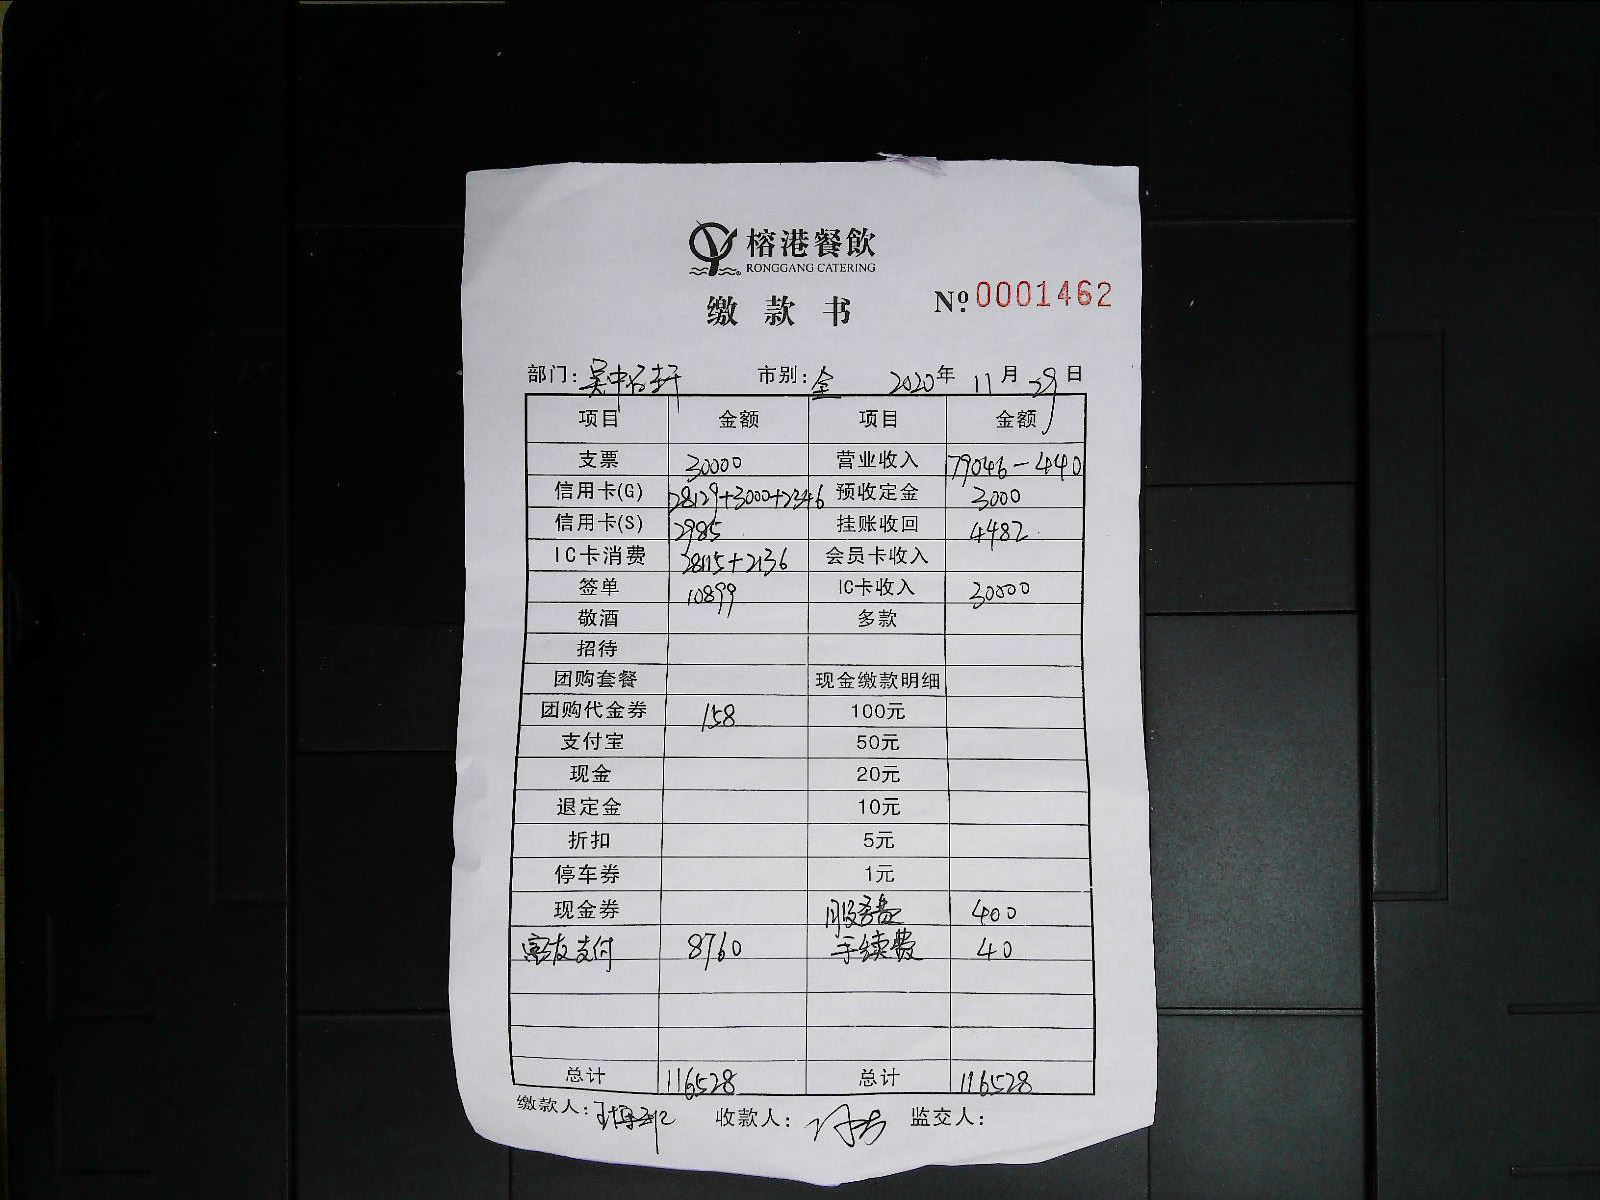 榕港餐飲
RONGGANG CATERING
缴款书 Nº 0001462
部门: 吴中名轩 市别: 全 2020年 11月 29日
项目 金额 项目 金额
支票 30000 营业收入 79046-440
信用卡(G) 28129+3000+2346 预收定金 3000
信用卡(S) 2985 挂账收回 4482
IC卡消费 28115+2136 会员卡收入
签单 10899 IC卡收入 30000
敬酒 多款
招待
团购套餐 现金缴款明细
团购代金券 158 100元
支付宝 50元
现金 20元
退定金 10元
折扣 5元
停车券 1元
现金券 服务费 400
支付 8760 手续费 40
总计 116528 总计 116528
缴款人: 收款人: 监交人: